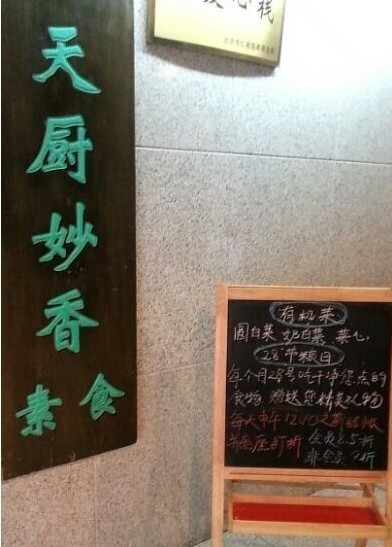 天厨妙香
素食
心栈
有机菜
圆白菜 奶白菜、菜心
28 节粮日
每个月28号吃干净您点的
食物 赠送您精美礼物
每天中午12:10之前结账
半座打折 会员8.5折
非会员9折